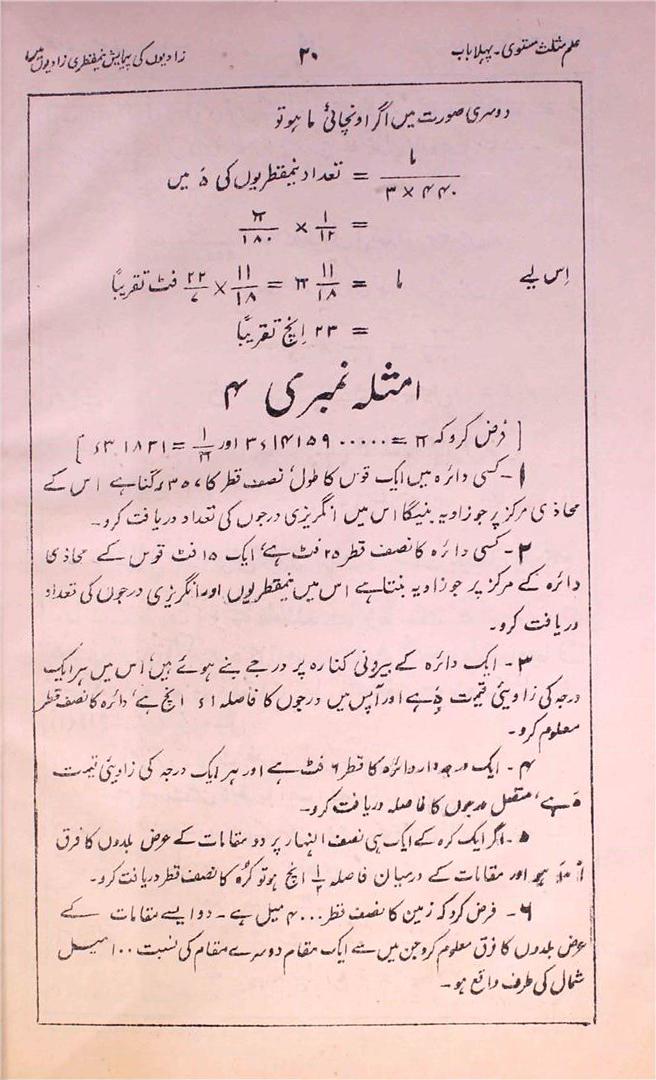 علم مثلث مستوی۔ پہلا باب ۲۰ زاویوں کی پیمایش نیمقطری زاویوں میں
دوسری صورت میں اگر اونچائی ما ہو تو
ما / ۳ × ۴۴۰ = تعداد نیمقطریوں کی ۵َ میں
= ۱/۱۲ × π/۱۸۰
اِس لیے ما = ۱۱/۱۸ π = ۱۱/۱۸ × ۲۲/۷ فٹ تقریبًا
= ۲۳ اِنچ تقریبًا
امثلہ نمبری ۴
[ فرض کرو کہ π = ۳٫۱۴۱۵۹۰۰۰۰۰ اور ۱/π = ٫۳۱۸۳۱ ]
۱۔ کسی دائرہ میں ایک قوس کا طول، نصف قطر کا ٫۳۵۷ گنا ہے اس کے
محاذی مرکز پر جو زاویہ بنیگا اس میں انگریزی درجوں کی تعداد دریافت کرو۔
۲۔ کسی دائرہ کا نصف قطر ۲۵ فٹ ہے، ایک ۱۵ فٹ قوس کے محاذی
دائرہ کے مرکز پر جو زاویہ بنتا ہے اس میں نیمقطریوں اور انگریزی درجوں کی تعداد
دریافت کرو۔
۳۔ ایک دائرہ کے بیرونی کنارہ پر درجے بنے ہوئے ہیں، اس میں ہر ایک
درجہ کی زاویئی قیمت ۵َ ہے اور آپس میں درجوں کا فاصلہ ٫۱ انچ ہے، دائرہ کا نصف قطر
معلوم کرو۔
۴۔ ایک درجہ دار دائرہ کا قطر ۶ فٹ ہے اور ہر ایک درجہ کی زاویئی قیمت
۵َ ہے، متصل درجوں کا فاصلہ دریافت کرو۔
۵۔ اگر ایک کرہ کے ایک ہی نصف النہار پر دو مقامات کے عرض بلدوں کا فرق
ہو اور مقامات کے درمیان فاصلہ ۱/۲ انچ ہو تو کرُہ کا نصف قطر دریافت کرو۔
۶۔ فرض کرو کہ زمین کا نصف قطر ۴۰۰۰ میل ہے۔ دو ایسے مقامات کے
عرض بلدوں کا فرق معلوم کرو جن میں سے ایک مقام دوسرے مقام کی نسبت ۱۰۰ میل
شمال کی طرف واقع ہو۔